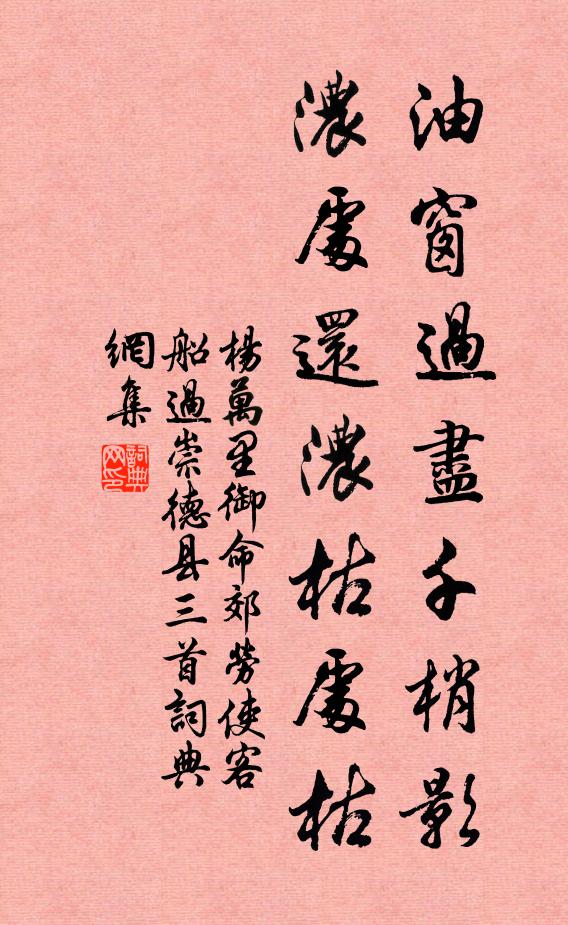 油窗過盡千梢影
濃處還濃枯處枯
楊萬里御命郊勞使客
船過崇德县三首詞典
網集
詞典
网印